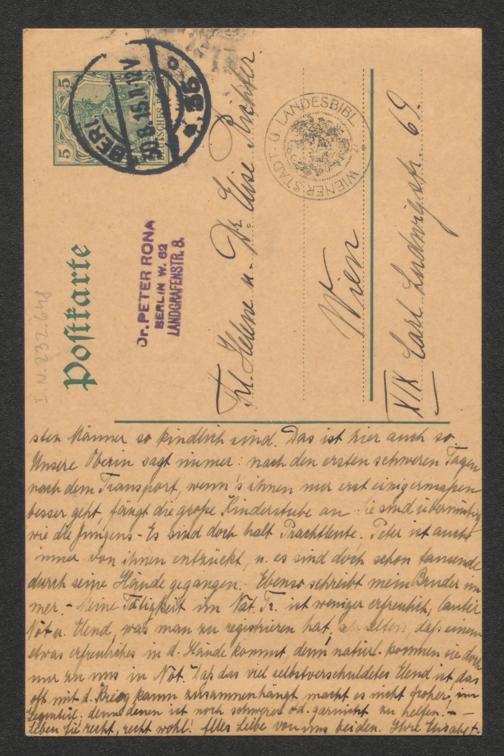 Postkarte
5 5
BERLIN
30.8.15.11-12V
* 36
Dr. PETER RONA
BERLIN W. 62
LANDGRAFENSTR. 8.
WIENER STADT- U. LANDESBIBL.
I.N. 232.641
Frl. Helene u. Dr. Elise Richter.
Wien
XIX Carl Ludwigstr. 69.
sten Männer so kindlich sind. Das ist hier auch so.
Unsere Oberin sagt immer: nach den ersten schweren Tagen
nach dem Transport, wenn's ihnen nur erst einigermaßen
besser geht, fängt die große Kinderstube an. Sie sind übermütig
wie die Jungens. Es sind doch halt Prachtleute. Peter ist auch
immer von ihnen entzückt, u. es sind doch schon tausende
durch seine Hände gegangen. Ebenso schreibt mein Bruder im
mer. – Meine Tätigkeit im Nat. Fr. ist weniger erfreulich, lauter
Not u. Elend, was man zu registrieren hat, selten, daß einem
etwas erfreuliches in d. Hände kommt denn natürl. kommen sie doch
nur zu uns in Not. Daß das viel selbstverschuldetes Elend ist das
oft mit d. Krieg kaum zusammenhängt macht es nicht froher; im
Gegenteil: denn denen ist noch schwerer od. garnicht zu helfen! –
Leben Sie recht, recht wohl! Alles Liebe von uns beiden. Ihre Elisabet